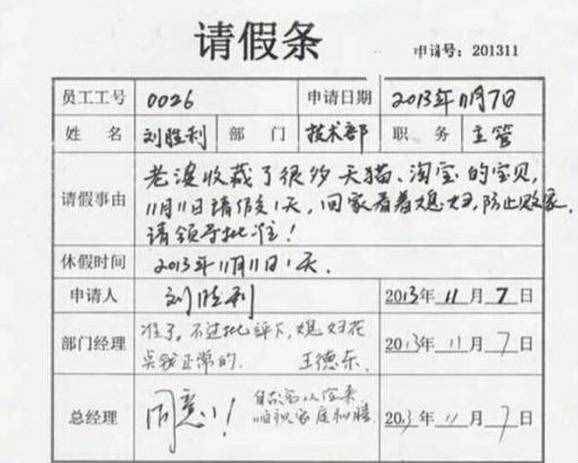 请假条
申请号：201311
员工工号 0026 申请日期 2013年11月7日
姓名 刘胜利 部门 技术部 职务 主管
请假事由
老婆收藏了很多天猫、淘宝的宝贝,
11月11日请假1天,回家看着媳妇,防止败家,
请领导批准!
休假时间 2013年11月11日1天.
申请人 刘胜利 2013年11月7日
部门经理
准了,不过批评下,媳妇花
钱正常的. 王德东.
2013年11月7日
总经理
同意!
家庭和睦
2013年11月7日